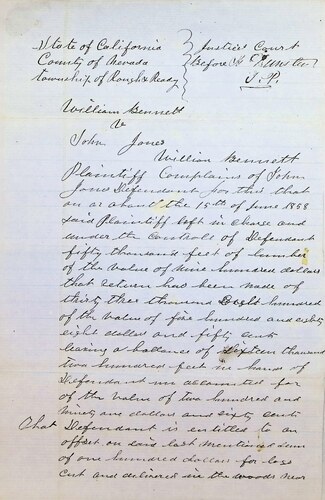 State of California } Justice Court
County of Nevada } Before
Township of Rough & Ready } J. P.
William Bennett
V
John Jones
William Bennett
Plaintiff Complains of John
Jones Defendant for this that
on or about the 15th of June 1858
said Plaintiff left in Charge and
under the Controle of Defendant
fifty thousand feet of lumber
of the value of nine hundred dollars
that return has been made of
thirty three thousand Eight hundred
of the value of five hundred and eighty
eight dollars and fifty cents
leaving a ballance of Sixteen thousand
two hundred feet in hands of
Defendant un accounted for
of the value of two hundred and
ninety one dollars and sixty cents
That Defendant is entitled to an
offset on said last mentioned sum
of one hundred dollars for logs
cut and delivered in the woods near